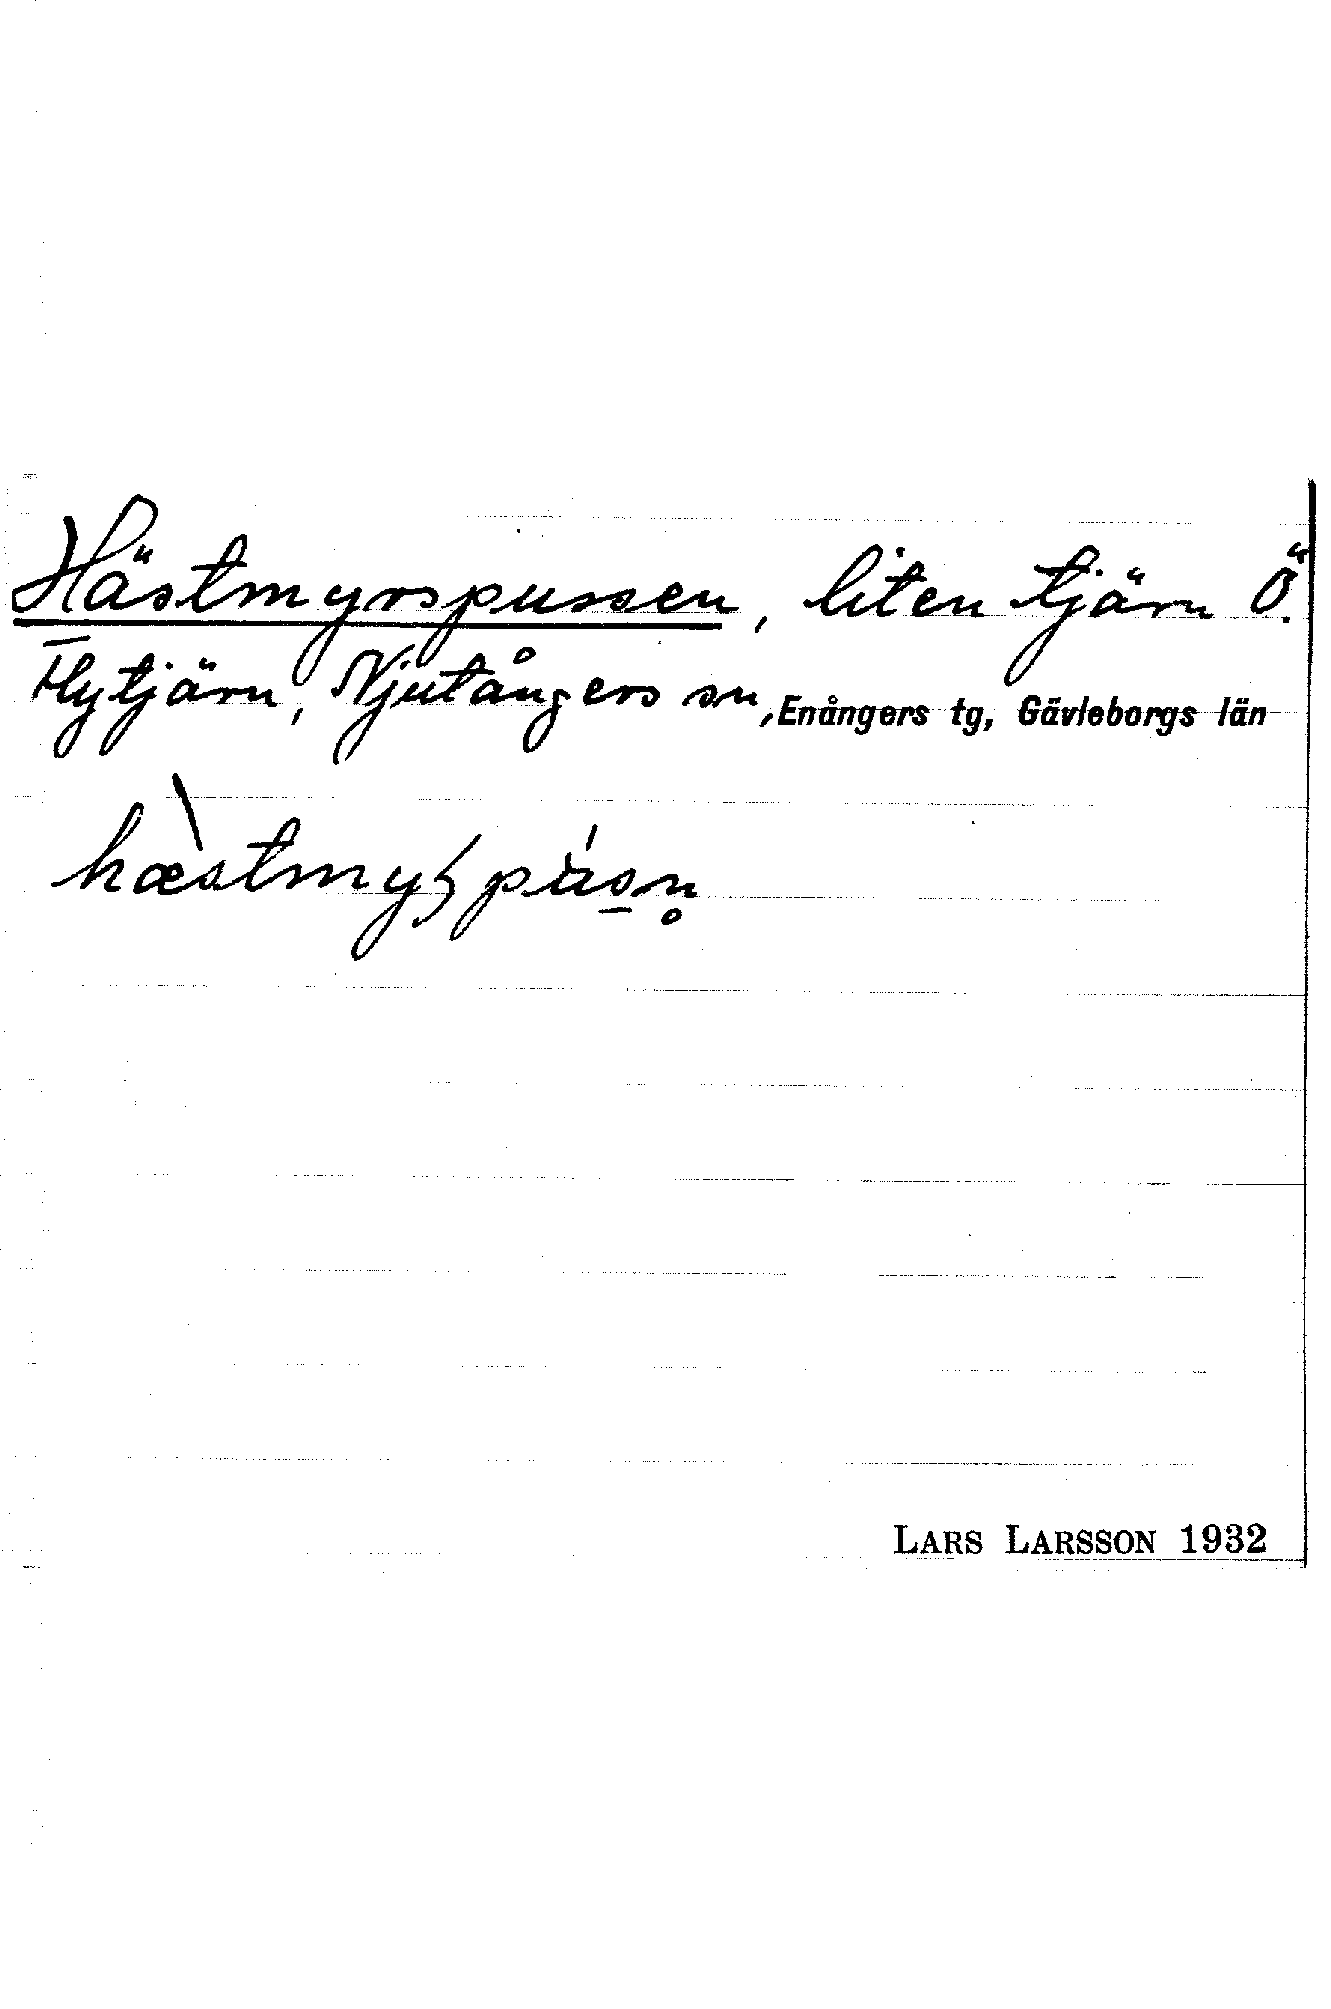 Hästmyrspussen, liten tjärn Ö.
Flytjärn, Njutångers sn, Enångers tg, Gävleborgs län
LARS LARSSON 1932